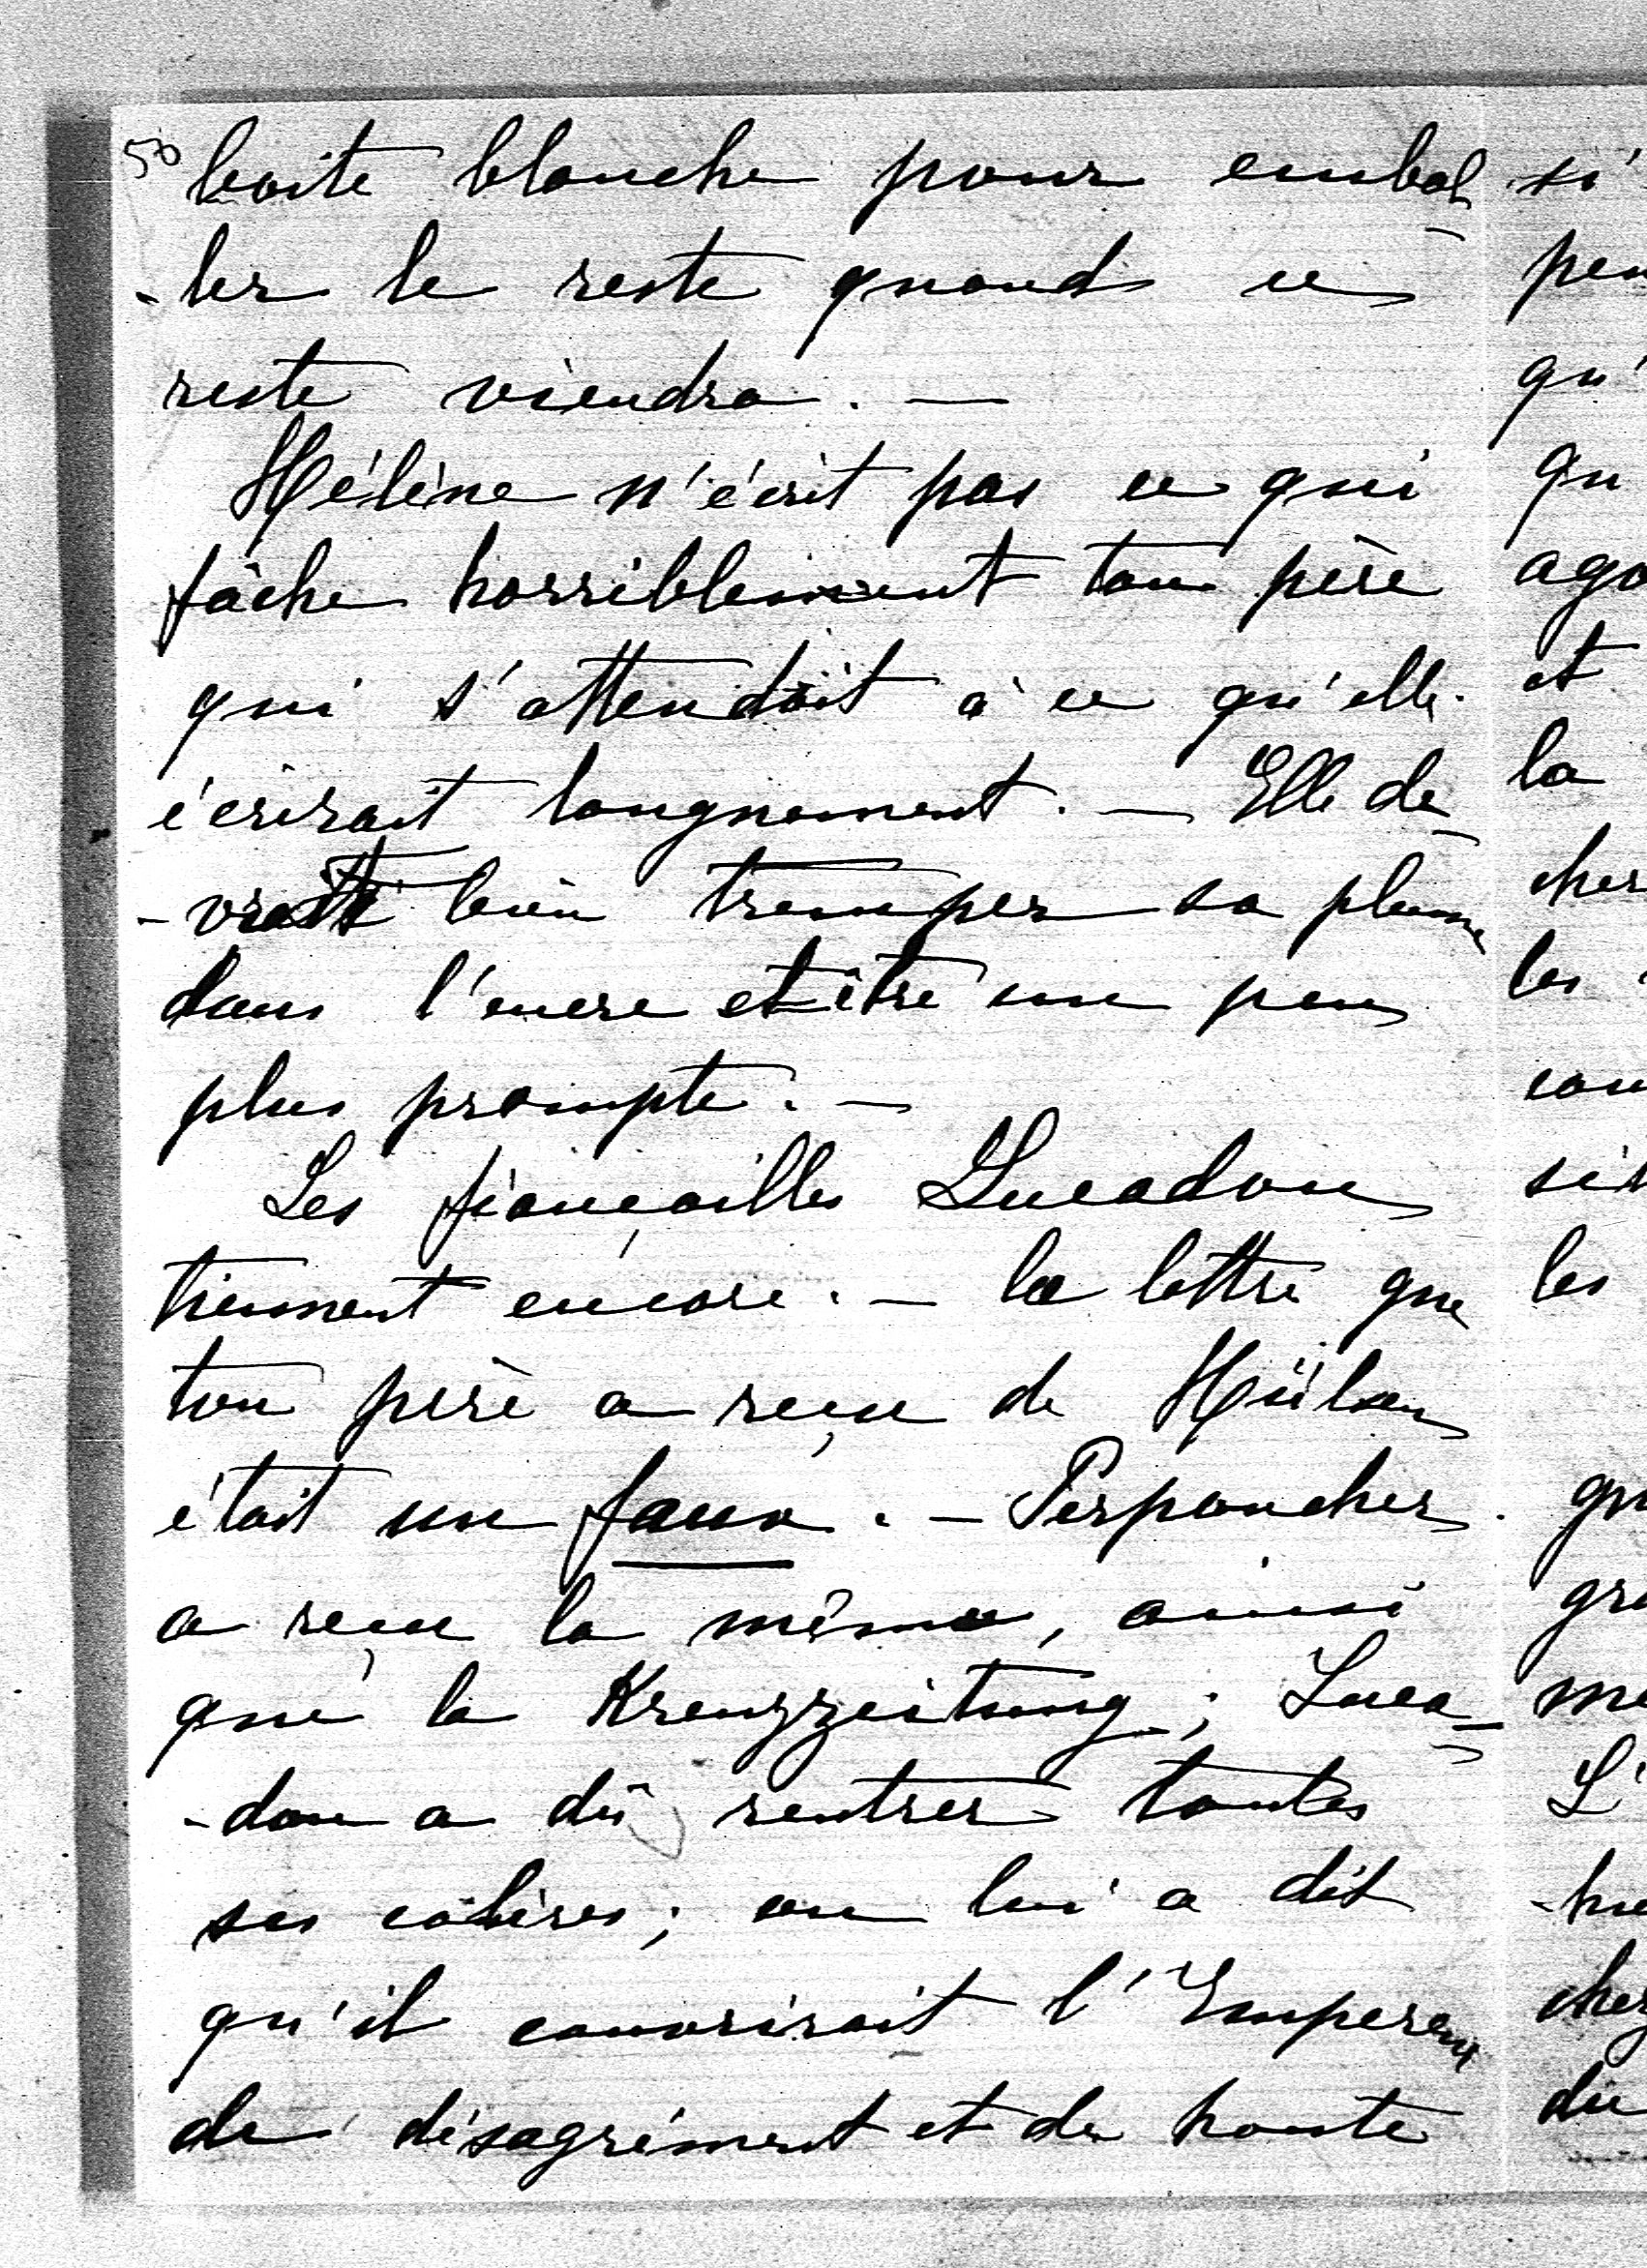 50
boite blanche pour embal
-ler le reste quand ce
reste viendra. —
Hélène n'écrit pas ce qui
fâche horriblement ton père
qui s'attendait à ce qu'elle
écrirait longuement. — Elle de
-vrait bien tremper sa plume
dans l'encre et être un peu
plus prompte. —
Les fiançailles Lucadou
tiennent encore. — la lettre que
ton père a reçu de Hülsen
était un faux. — Perponcher
a reçu la même, ainsi
que la Kreuzzeitung; Luca
-dou a dû rentrer toutes
ses colères; on lui a dit
qu'il couvrirait l'Empereur
de désagrément et de honte
si
qu'
qu
et
la
cher
les
les
L'